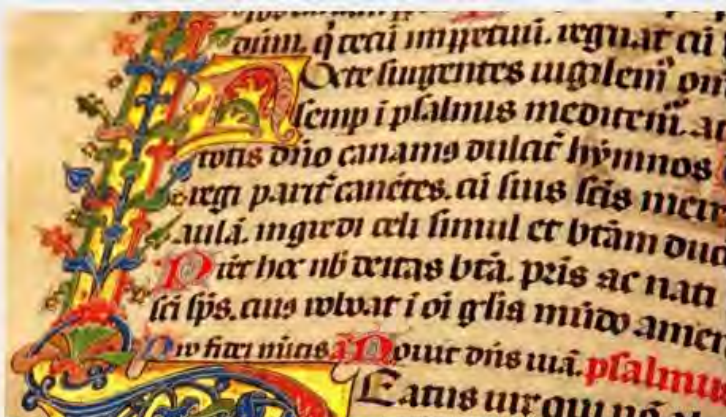 regnat cū
Nocte surgentes uigilem᷑ om
semp i psalmus meditem᷑. at
totis dño canams dulcit᷑ hymnos
regi parit᷑ canētes. cū suis scīs mer
aulā. ingredi celi simul et btām duc
Prēt hoc nb deitas btā. pris ac nati
sci sps. cuius i oi glia mūdo amen
a Nouit dns uiā. psalmu
Beatus uir qui